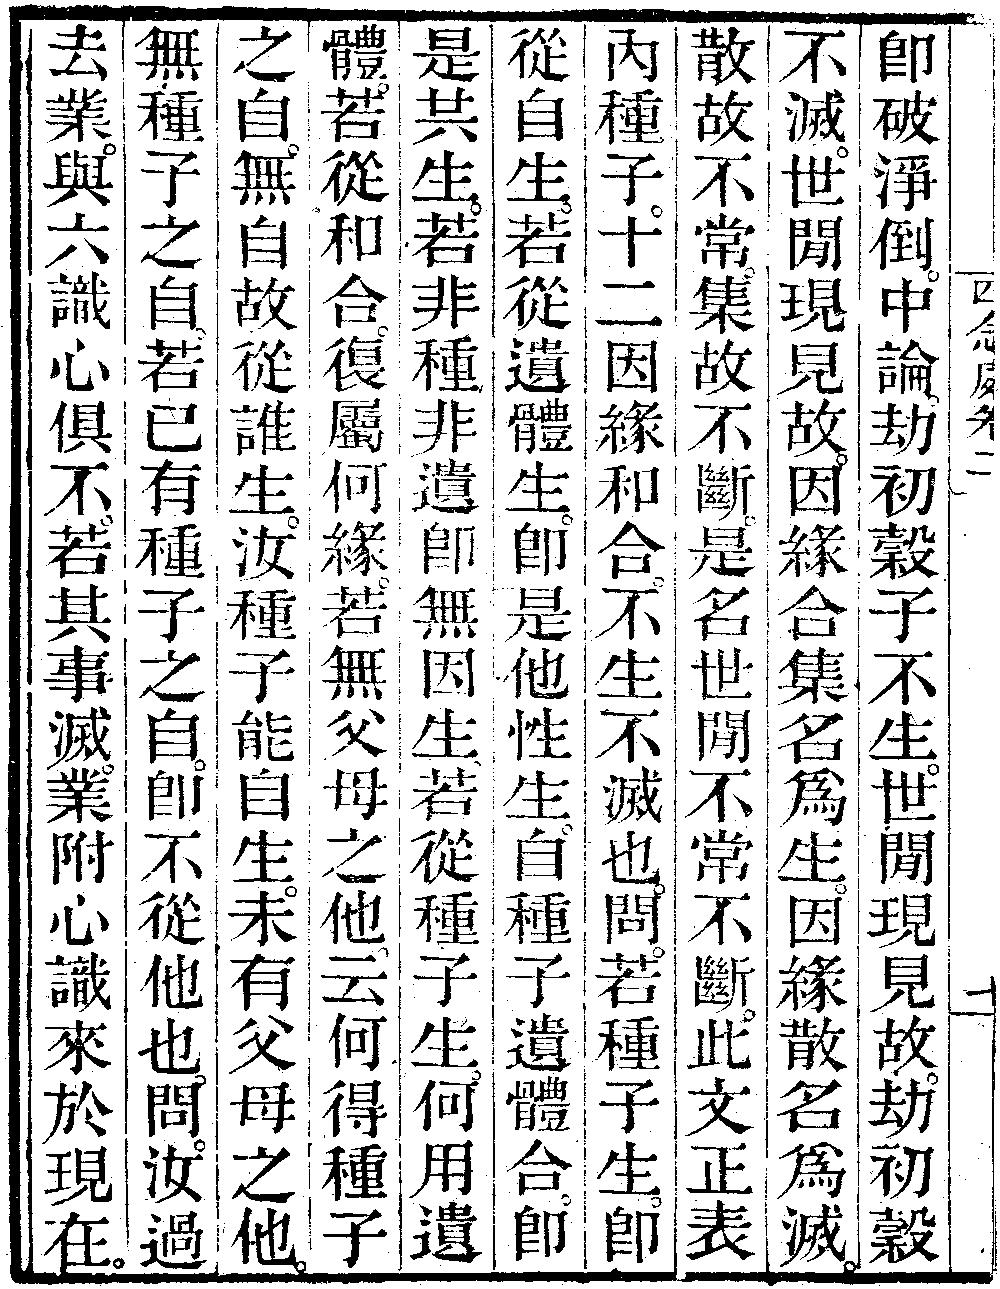 四念處卷二
十
卽破淨倒。中論。劫初穀子不生。世閒現見故。劫初穀
不滅。世閒現見故。因緣合集名爲生。因緣散名爲滅。
散故不常。集故不斷。是名世閒不常不斷。此文正表
內種子。十二因緣和合。不生不滅也。問。若種子生。卽
從自生。若從遺體生。卽是他性生。自種子遺體合。卽
是共生。若非種非遺卽無因生。若從種子生。何用遺
體。若從和合。復屬何緣。若無父母之他。云何得種子
之自。無自故從誰生。汝種子能自生。未有父母之他。
無種子之自。若已有種子之自。卽不從他也。問。汝過
去業。與六識心俱不。若其事滅。業附心識來於現在。